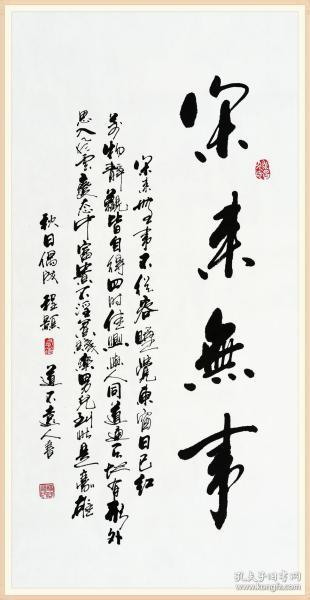 閑来無事
閑来無事不從容睡覺東窗日已紅
萬物靜觀皆自得四时佳興與人同道通天地有形外
思入風雲變态中富貴不淫貧賤樂男兒到此是豪雄
秋日偶成 程顥 道不遠人書
孔夫子旧书网
www.kongfz.com